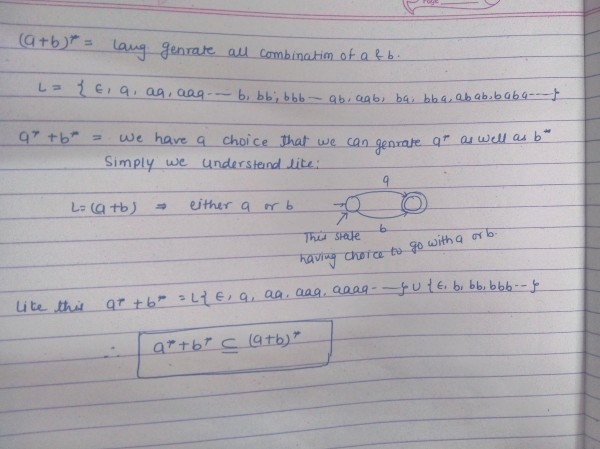 Page
(a+b)* = Lang genrate all combination of a & b.
L = { ε, a, aa, aaa --- b, bb, bbb -- ab, aab, ba, bba, abab, baba ---- }
a* + b* = we have a choice that we can genrate a* as well as b*
Simply we understand like:
L = (a+b) ⇒ either a or b
a
b
This state
having choice to go with a or b.
Like this a* + b* = L{ ε, a, aa, aaa, aaaa - --} ∪ { ε, b, bb, bbb -- }
∴ a* + b* ⊆ (a+b)*